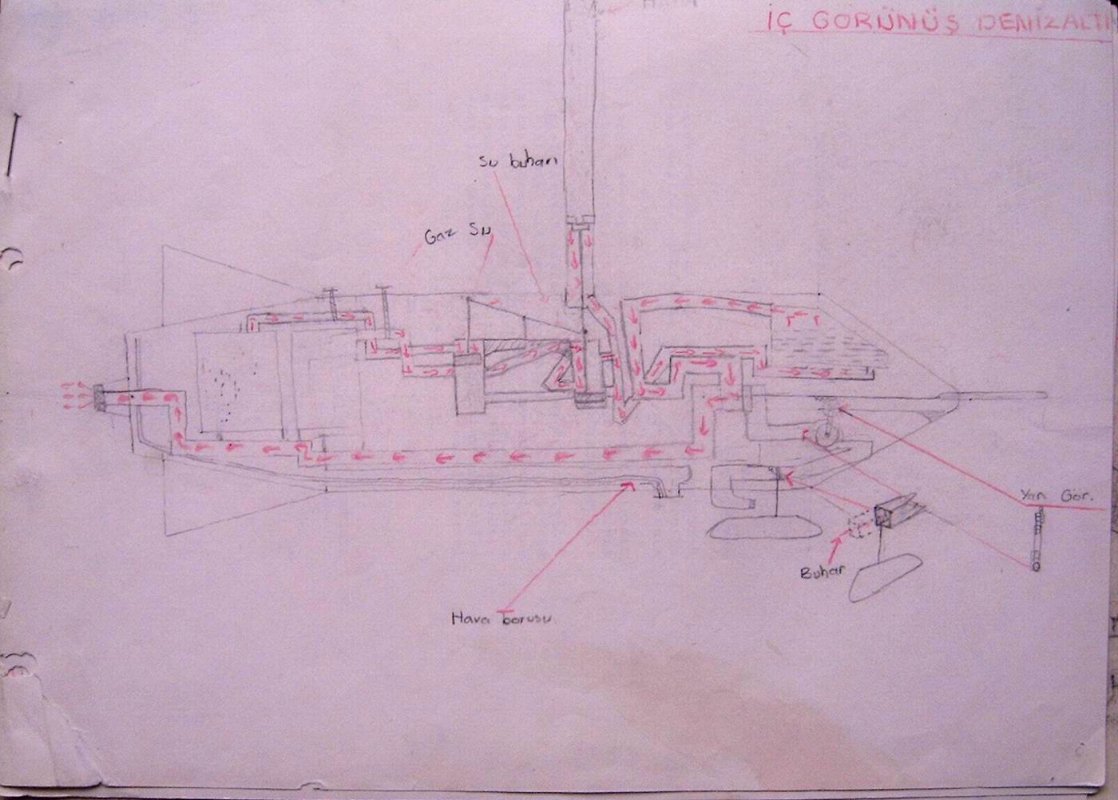 İÇ GÖRÜNÜŞ DENİZALTI
Su buharı
Gaz Su
Yan Gör.
Buhar
Hava borusu